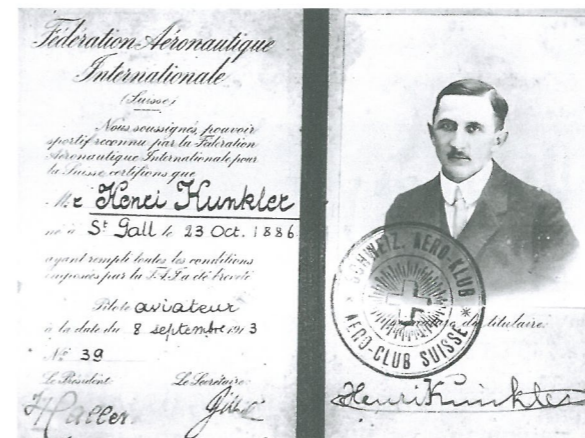 Fédération Aéronautique
Internationale
(Suisse)
Nous soussignés, pouvoir
sportif reconnu par la Fédération
Aéronautique Internationale pour
la Suisse certifions que
Mr Henri Kunkler
né à St Gall le 23 Oct. 1886
ayant rempli toutes les conditions
imposées par la F.A.I. a été breveté
Pilote aviateur
à la date du 8 septembre 1913
No 39
Le Président: Le Secrétaire:
Haller
SCHWEIZ. AERO-KLUB
AERO-CLUB SUISSE
du titulaire:
Henri Kunkler